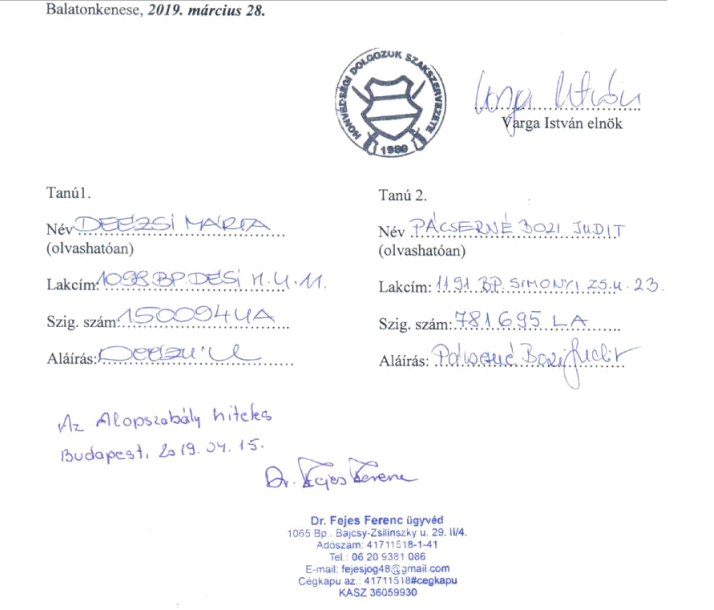 Balatonkenese, 2019. március 28.
HONVÉDSÉGI DOLGOZÓK SZAKSZERVEZETE
1989
Varga István
Varga István elnök
Tanú1.
Név DEÉZSI MÁRIA
(olvashatóan)
Lakcím: 1098 BP. DÉSI H. U. 11.
Szig. szám: 150094UA
Aláírás:
Tanú 2.
Név PÁCSERNÉ BOZI JUDIT
(olvashatóan)
Lakcím: 1191 BP. SIMONYI ZS. U. 23.
Szig. szám: 781695 LA
Aláírás: Pácserné Bozi Judit
Az Alapszabály hiteles
Budapest, 2019. 04. 15.
Dr. Fejes Ferenc
Dr. Fejes Ferenc ügyvéd
1065 Bp., Bajcsy-Zsilinszky u. 29. II/4.
Adószám: 41711518-1-41
Tel.: 06 20 9381 086
E-mail: fejesjog48@gmail.com
Cégkapu az.: 41711518#cegkapu
KASZ 36059930